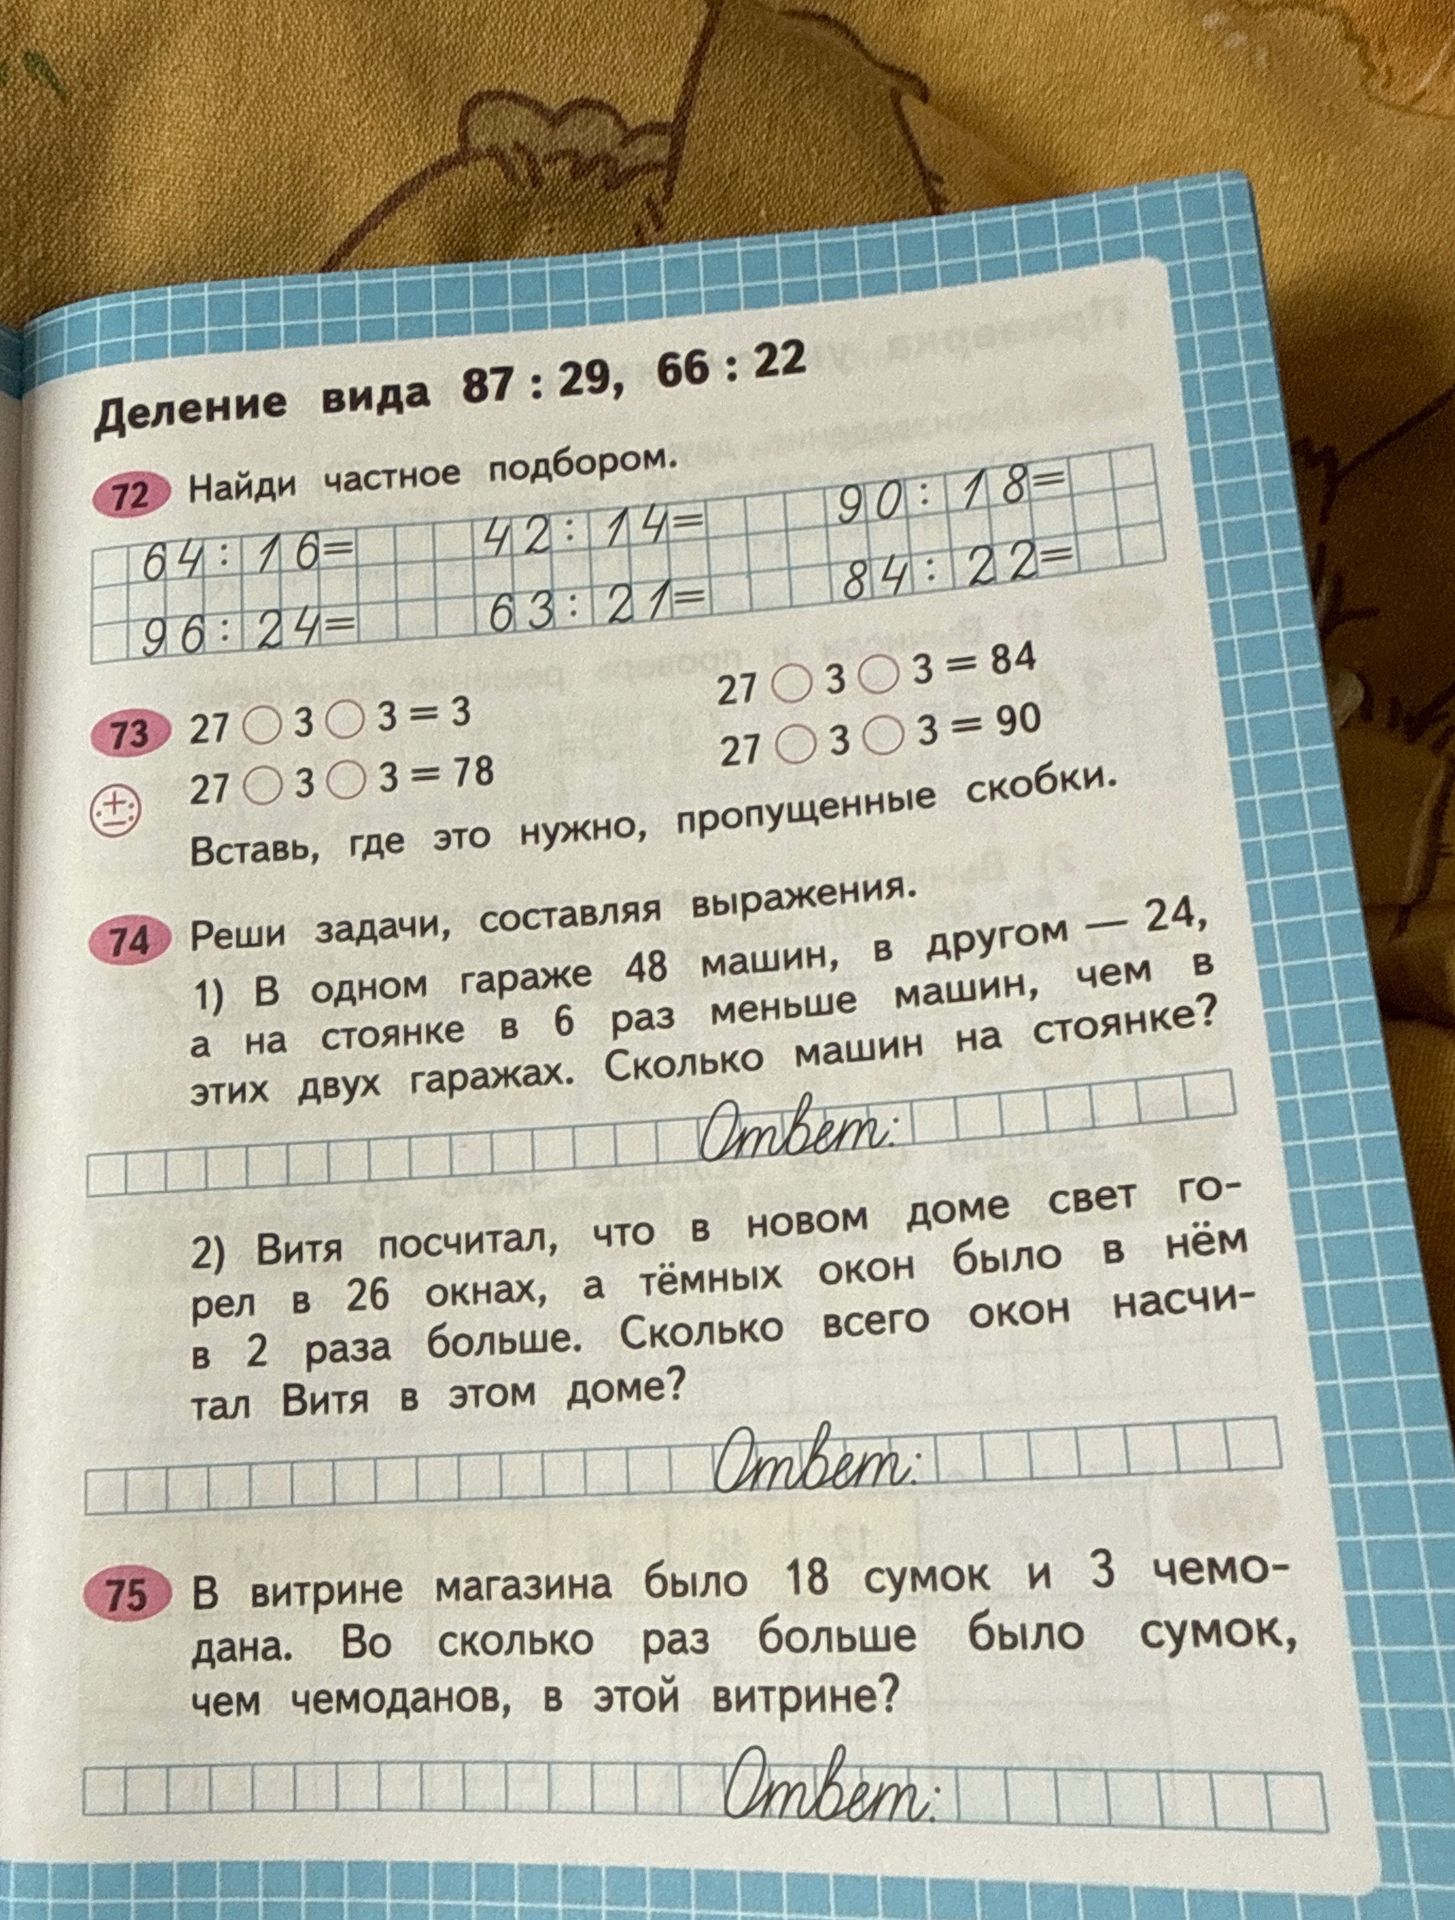 Деление вида 87 : 29, 66 : 22
72 Найди частное подбором.
64 : 16 = 42 : 14 = 90 : 18 =
96 : 24 = 63 : 21 = 84 : 22 =
73 27 ○ 3 ○ 3 = 3 27 ○ 3 ○ 3 = 84
27 ○ 3 ○ 3 = 78 27 ○ 3 ○ 3 = 90
Вставь, где это нужно, пропущенные скобки.
74 Реши задачи, составляя выражения.
1) В одном гараже 48 машин, в другом — 24,
а на стоянке в 6 раз меньше машин, чем в
этих двух гаражах. Сколько машин на стоянке?
Ответ:
2) Витя посчитал, что в новом доме свет го-
рел в 26 окнах, а тёмных окон было в нём
в 2 раза больше. Сколько всего окон насчи-
тал Витя в этом доме?
Ответ:
75 В витрине магазина было 18 сумок и 3 чемо-
дана. Во сколько раз больше было сумок,
чем чемоданов, в этой витрине?
Ответ: